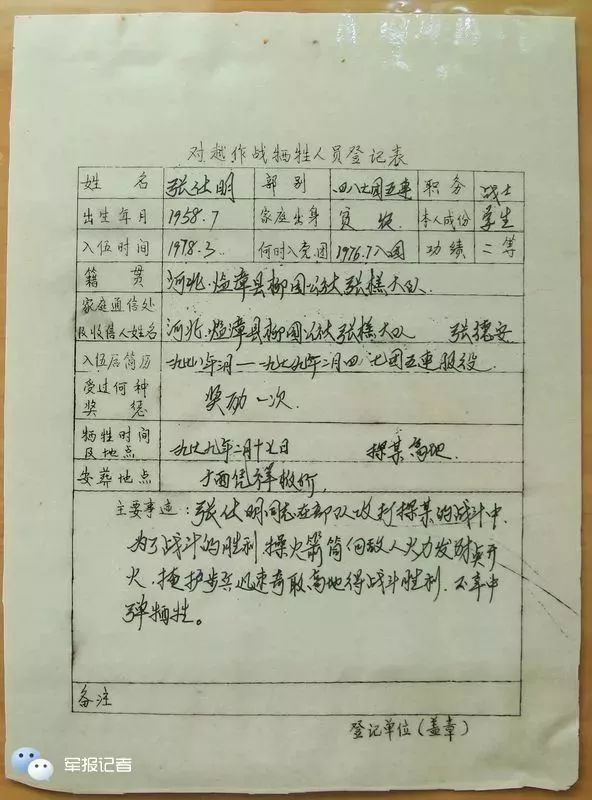 对越作战牺牲人员登记表
姓名 张仕明 部别 四八七团五连 职务 战士
出生年月 1958.7 家庭出身 贫农 本人成份 学生
入伍时间 1978.3 何时入党.团 1976.7入团 功绩 二等
籍贯 河北.临漳县柳园公社张樣大队
家庭通信处及收信人姓名 河北.临漳县柳园公社张樣大队 张德安
入伍后简历 一九七八年三月—一九七九年二月四八七团五连服役.
受过何种奖惩 奖励一次.
牺牲时间及地点 一九七九年二月十七日 探某高地.
安葬地点 广西凭祥
主要事迹:张仕明同志在部队攻打探某的战斗中.
为了战斗的胜利,操火箭筒向敌人火力发射点开
火.掩护步兵迅速夺取高地得战斗胜利.不幸中
弹牺牲。
备注
登记单位(盖章)
军报记者